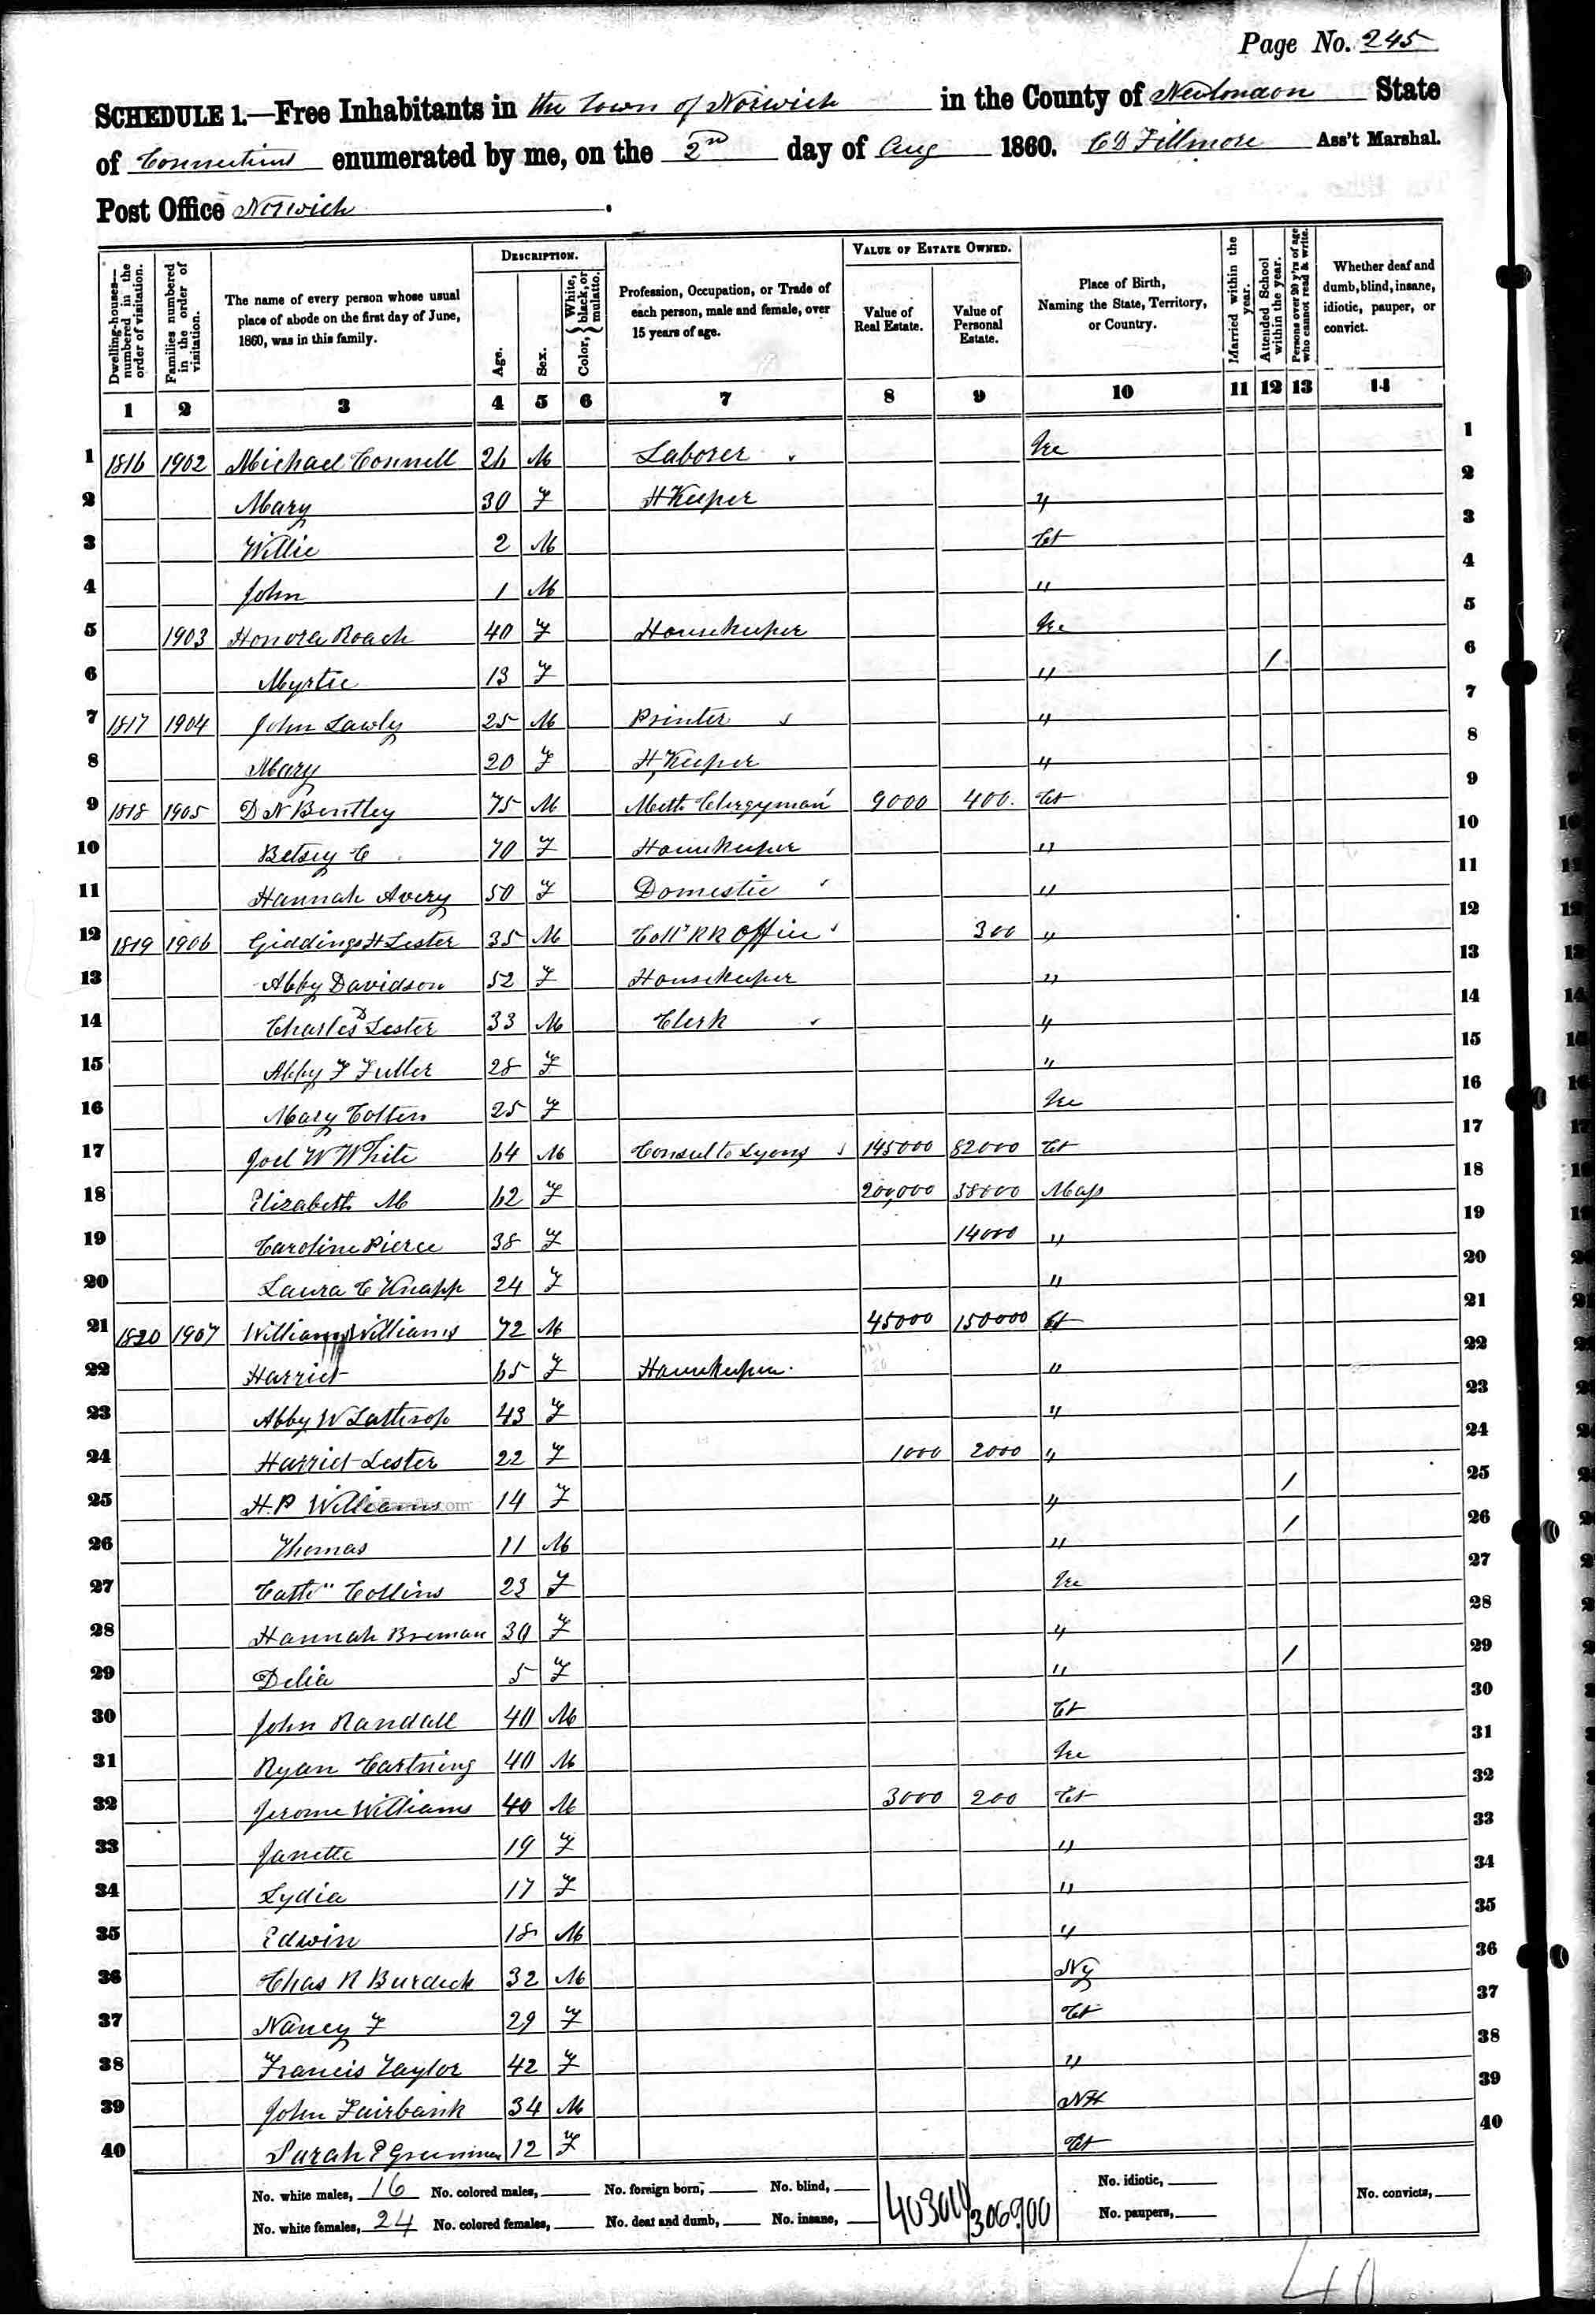 Page No. 245
SCHEDULE 1.—Free Inhabitants in the Town of Norwich in the County of New London State
of Connecticut enumerated by me, on the 2nd day of Aug 1860. C D Fillmore Ass't Marshal.
Post Office Norwich.
Dwelling-houses—numbered in the order of visitation.
Families numbered in the order of visitation.
The name of every person whose usual place of abode on the first day of June, 1860, was in this family.
DESCRIPTION.
Age.
Sex.
Color, { White, black, or mulatto.
Profession, Occupation, or Trade of each person, male and female, over 15 years of age.
VALUE OF ESTATE OWNED.
Value of Real Estate.
Value of Personal Estate.
Place of Birth, Naming the State, Territory, or Country.
Married within the year.
Attended School within the year.
Persons over 20 y'rs of age who cannot read & write.
Whether deaf and dumb, blind, insane, idiotic, pauper, or convict.
1 2 3 4 5 6 7 8 9 10 11 12 13 14
1 1816 1902 Michael Connell 26 M Laborer Ire 1
2 Mary 30 F H Keeper " 2
3 Willie 2 M Ct 3
4 John 1 M " 4
5 1903 Honora Roach 40 F Housekeeper Ire 5
6 Myrtie 13 F " / 6
7 1817 1904 John Lawly 25 M Printer " 7
8 Mary 20 F H Keeper " 8
9 1818 1905 D N Bentley 75 M Meth Clergyman 9000 400. Ct 9
10 Betsey C 70 F Housekeeper " 10
11 Hannah Avery 50 F Domestic " 11
12 1819 1906 Giddings H Lester 35 M Coll' RR Office 300 " 12
13 Abby Davidson 52 F Housekeeper " 13
14 Charles D Lester 33 M Clerk " 14
15 Abby F Fuller 28 F " 15
16 Mary Cotten 25 F Ire 16
17 Joel W White 64 M Consul to Lyons 145000 82000 Ct 17
18 Elizabeth M 62 F 200,000 38000 Mass 18
19 Caroline Pierce 38 F 14000 " 19
20 Laura C Knapp 24 F " 20
21 1820 1907 William Williams 72 M 45000 150000 Ct 21
22 Harriet 65 F Housekeeper " 22
23 Abby W Lathrop 43 F " 23
24 Harriet Lester 22 F 1000 2000 " 24
25 H. P Williams 14 F " / 25
26 Thomas 11 M " / 26
27 Cath" Collins 23 F Ire 27
28 Hannah Breman 30 F " 28
29 Delia 5 F " / 29
30 John Randall 40 M Ct 30
31 Ryan 40 M Ire 31
32 Jerome Williams 40 M 3000 200 Ct 32
33 Janette 19 F " 33
34 Lydia 17 F " 34
35 Edwin 18 M " 35
36 Chas R Burdick 32 M NY 36
37 Nancy F 29 F Ct 37
38 Francis Taylor 42 F " 38
39 John Fairbank 34 M NH 39
40 Sarah P 12 F Ct 40
No. white males, 16 No. colored males, No. foreign born, No. blind, No. idiotic, No. convicts,
No. white females, 24 No. colored females, No. deaf and dumb, No. insane, No. paupers,
306900
40